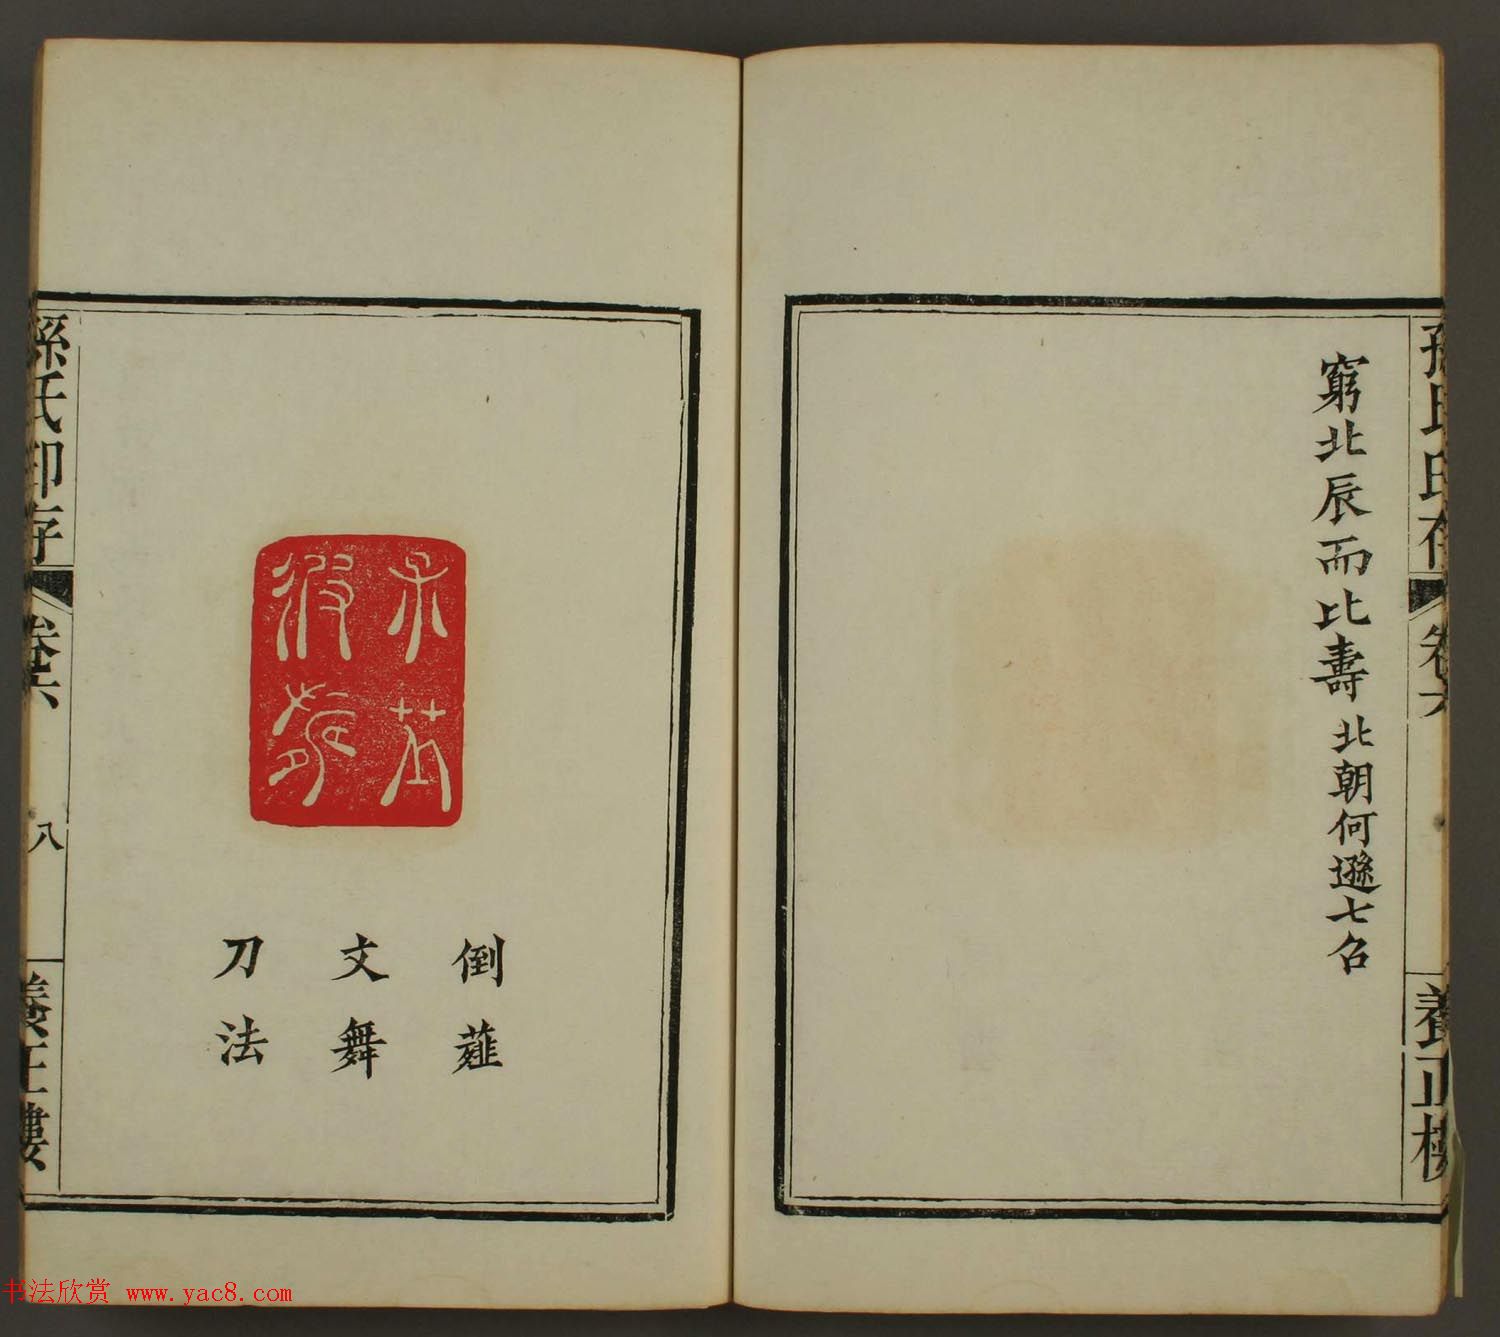 孫氏印存
卷六
養正樓
窮北辰而比壽北朝何遜七召
倒薤
文舞
刀法
孫氏印存
卷六
八
養正樓
书法欣赏 www.yac8.com